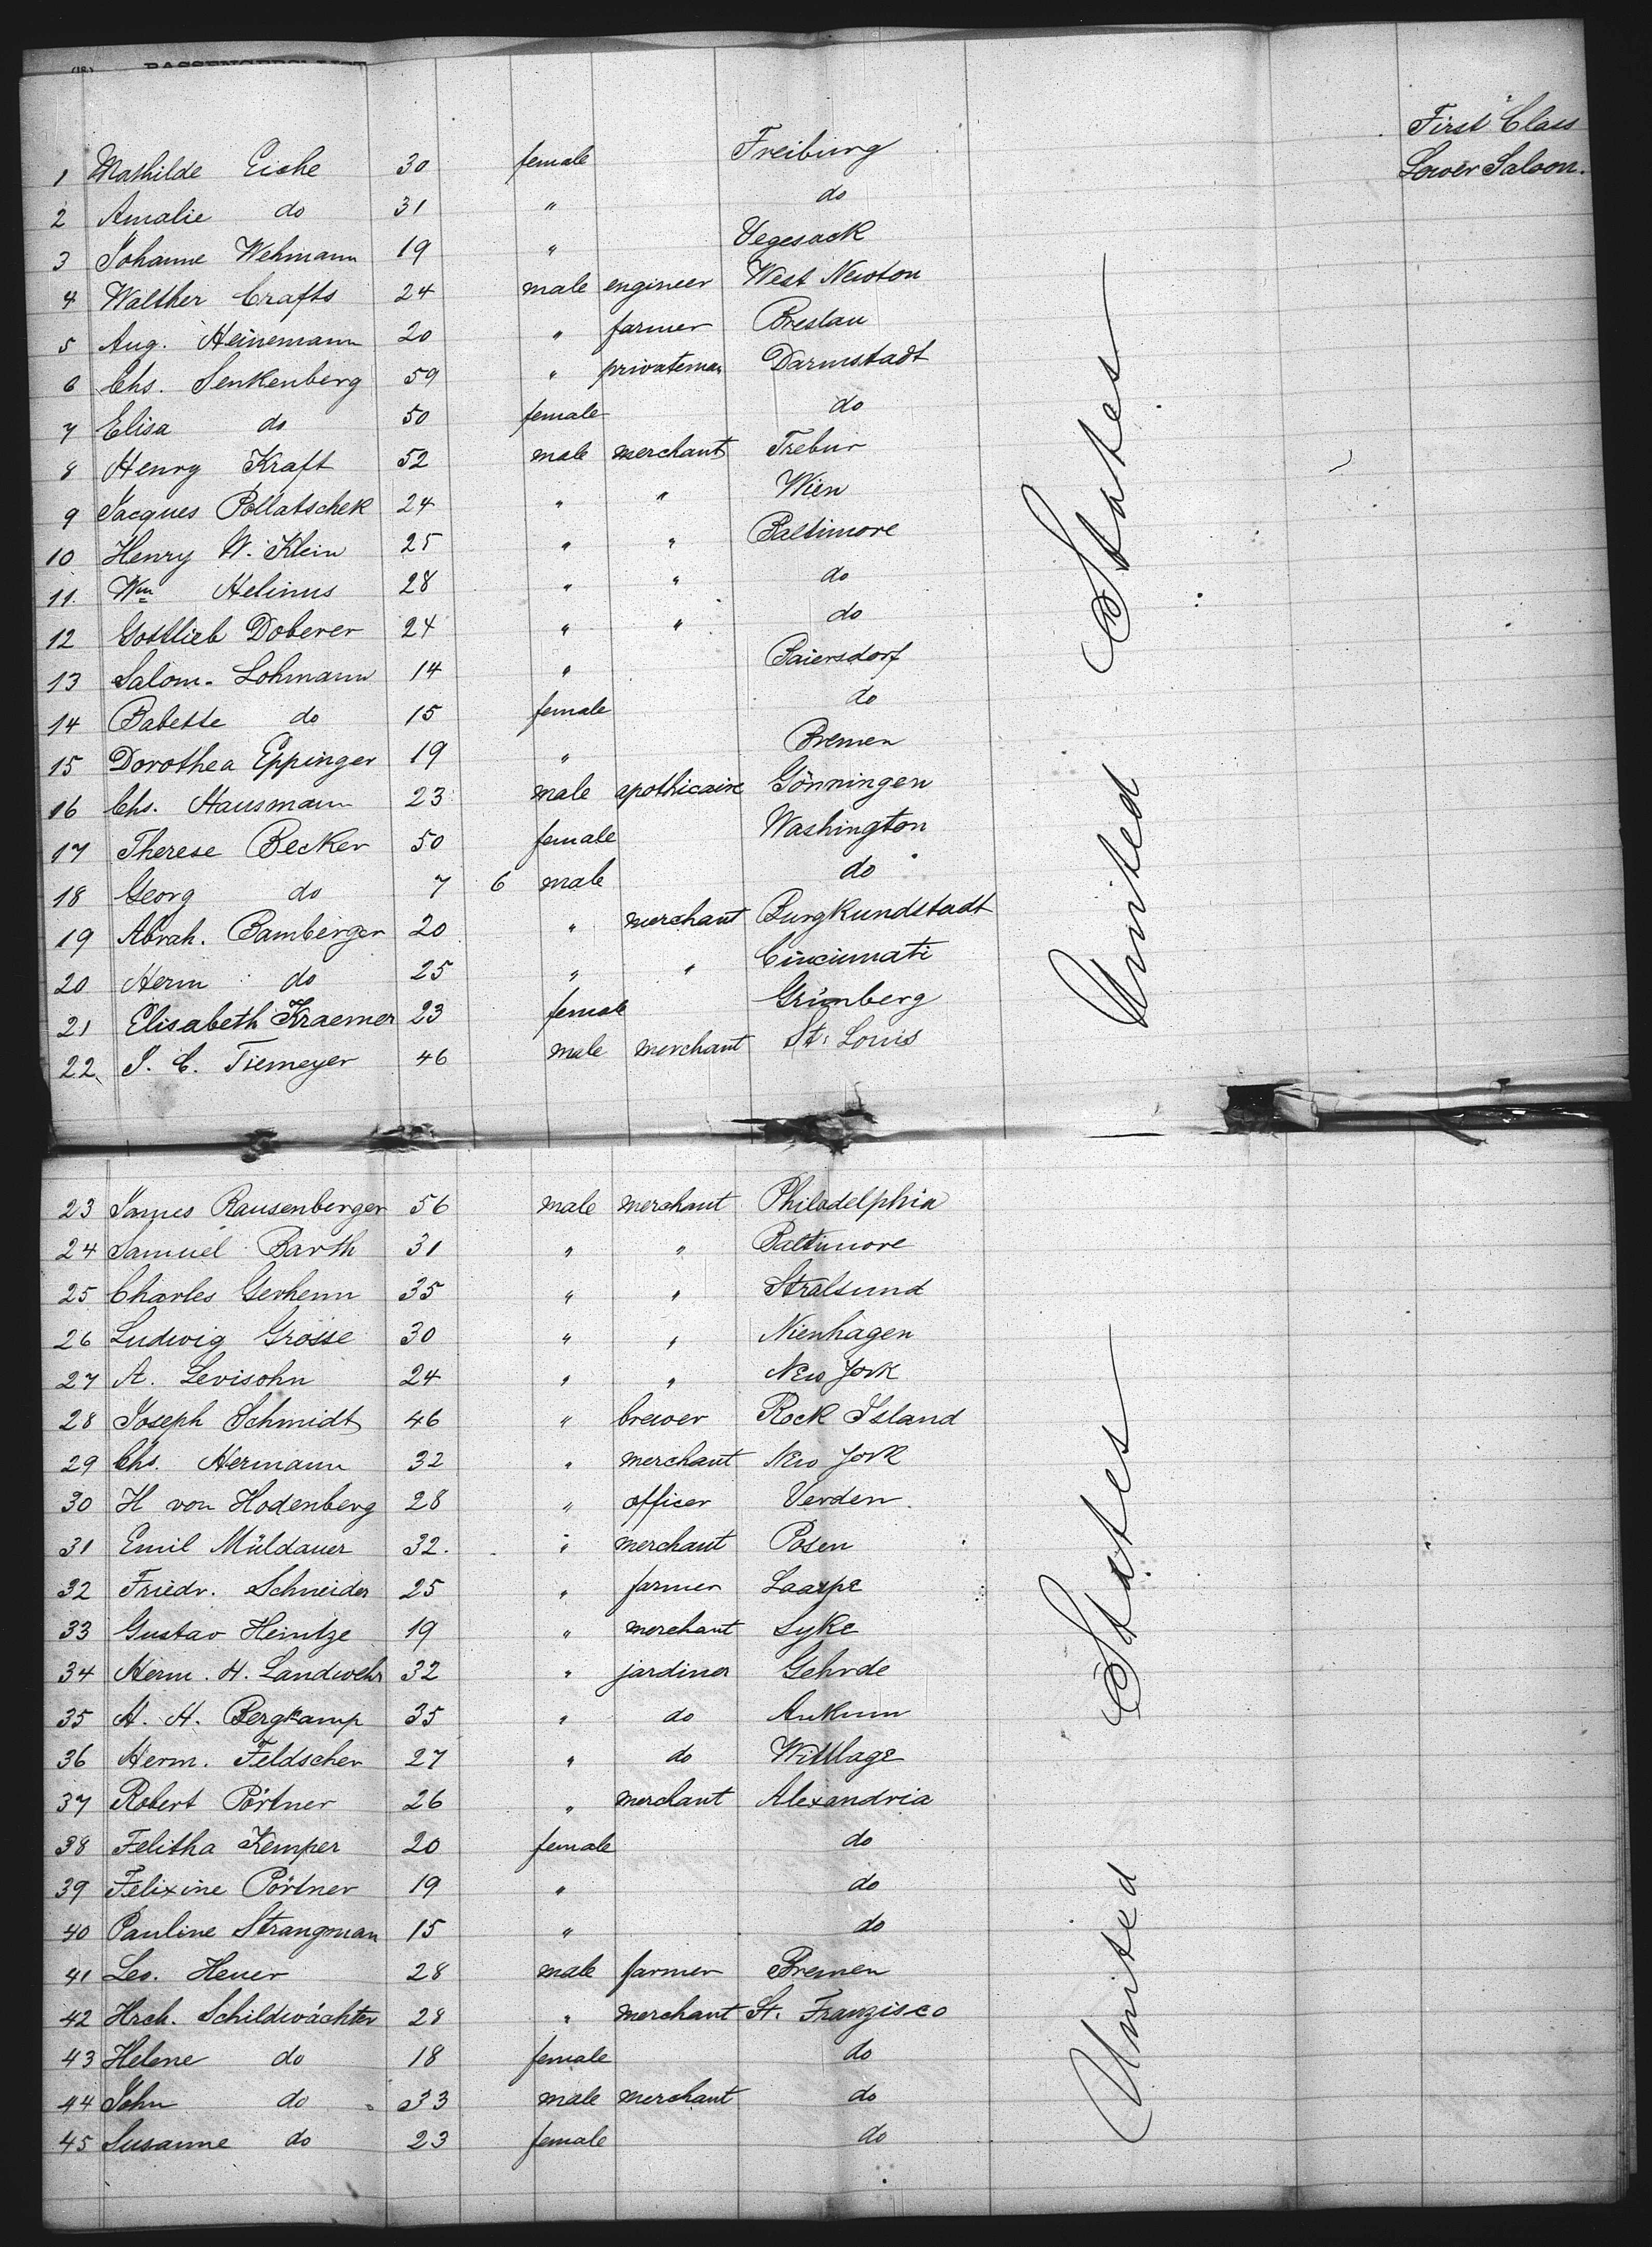 First Class
Lower Saloon.
1 Mathilde Eicke 30 female Freiburg
2 Amalie do 31 " do
3 Johanne Wehmann 19 " Vegesack
4 Walther Crafts 24 male engineer West Newton
5 Aug. Heinemann 20 " farmer Breslau
6 Chs. Senkenberg 59 " privateman Darmstadt
7 Elisa do 50 female do
8 Henry Kraft 52 male merchant Trebur
9 Jacques Pollatschek 24 " " Wien
10 Henry W. Klein 25 " " Baltimore
11. Wm Helinus 28 " " do
12 Gottlieb Doberer 24 " " do
13 Salom. Lohmann 14 " Baiersdorf
14 Babette do 15 female do
15 Dorothea Eppinger 19 " Bremen
16 Chs. Hausmann 23 male apothicaire Gönningen
17 Therese Becker 50 female Washington
18 Georg do 7 6 male do
19 Abrah. Bamberger 20 " merchant Burgkundstadt
20 Herm do 25 " " Cincinnati
21 Elisabeth Kraemer 23 female Grünberg
22 J. C. Tiemeyer 46 male merchant St. Louis
United States
23 James Rausenberger 56 male merchant Philadelphia
24 Samuel Barth 31 " " Baltimore
25 Charles Gerhenn 35 " " Stralsund
26 Ludwig Grosse 30 " " Nienhagen
27 A. Levisohn 24 " " New York
28 Joseph Schmidt 46 " brewer Rock Island
29 Chs. Hermann 32 " merchant New York
30 H von Hodenberg 28 " officer Verden
31 Emil Müldauer 32. " merchant Posen
32 Friedr. Schneider 25 " farmer Laaspe
33 Gustav Heintze 19 " merchant Syke
34 Herm. H. Landwehr 32 " jardiner Gehrde
35 H. H. Bergkamp 35 " do Ankum
36 Herm. Feldscher 27 " do Wittlage
37 Robert Pörtner 26 " merchant Alexandria
38 Felitha Kemper 20 female do
39 Felixine Pörtner 19 " do
40 Pauline Strangman 15 " do
41 Leo. Heuer 28 male farmer Bremen
42 Hrch. Schildwächter 28 " merchant St. Franzisco
43 Helene do 18 female do
44 John do 33 male merchant do
45 Susanne do 23 female do
United States